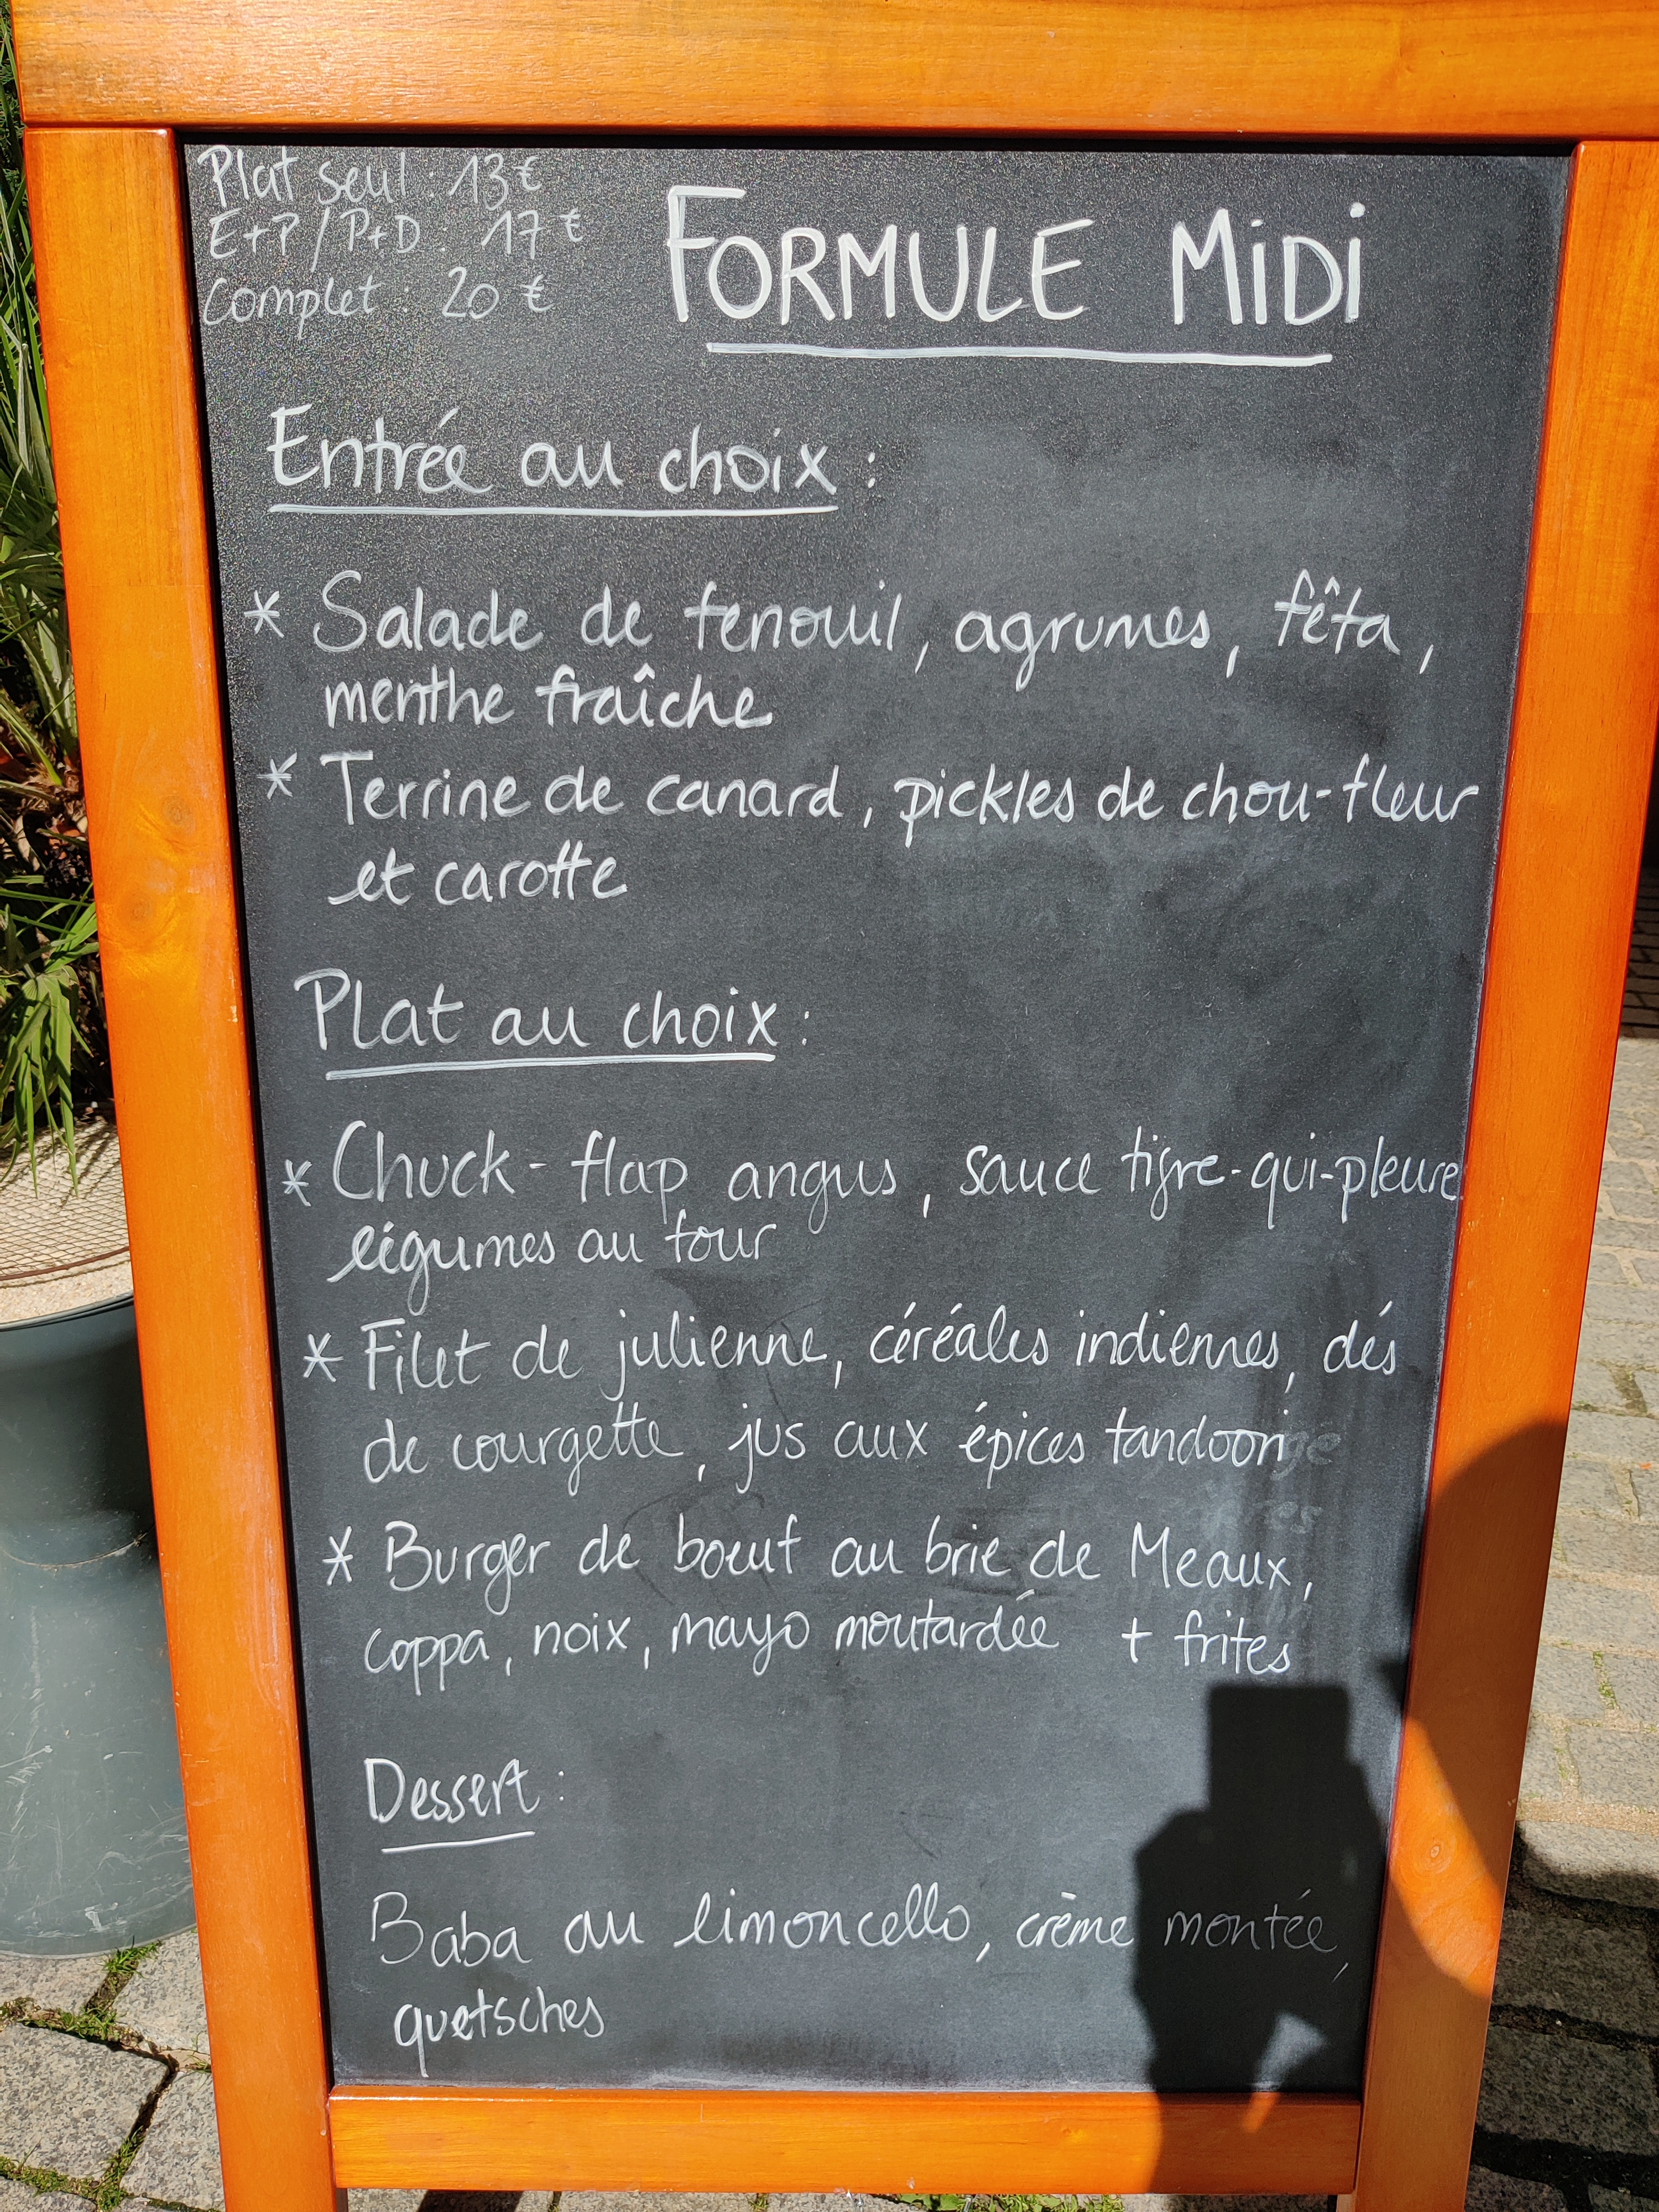 Plat seul : 13€
E+P/P+D : 17€
Complet : 20€
FORMULE MiDi
Entrée au choix :
* Salade de fenouil, agrumes, fêta,
menthe fraîche
* Terrine de canard, pickles de chou-fleur
et carotte
Plat au choix :
* Chuck-flap angus, sauce tigre-qui-pleure
légumes au tour
* Filet de julienne, céréales indiennes, dés
de courgette, jus aux épices tandoori
* Burger de boeuf au brie de Meaux,
coppa, noix, mayo moutardée + frites
Dessert :
Baba au limoncello, crème montée,
quetsches